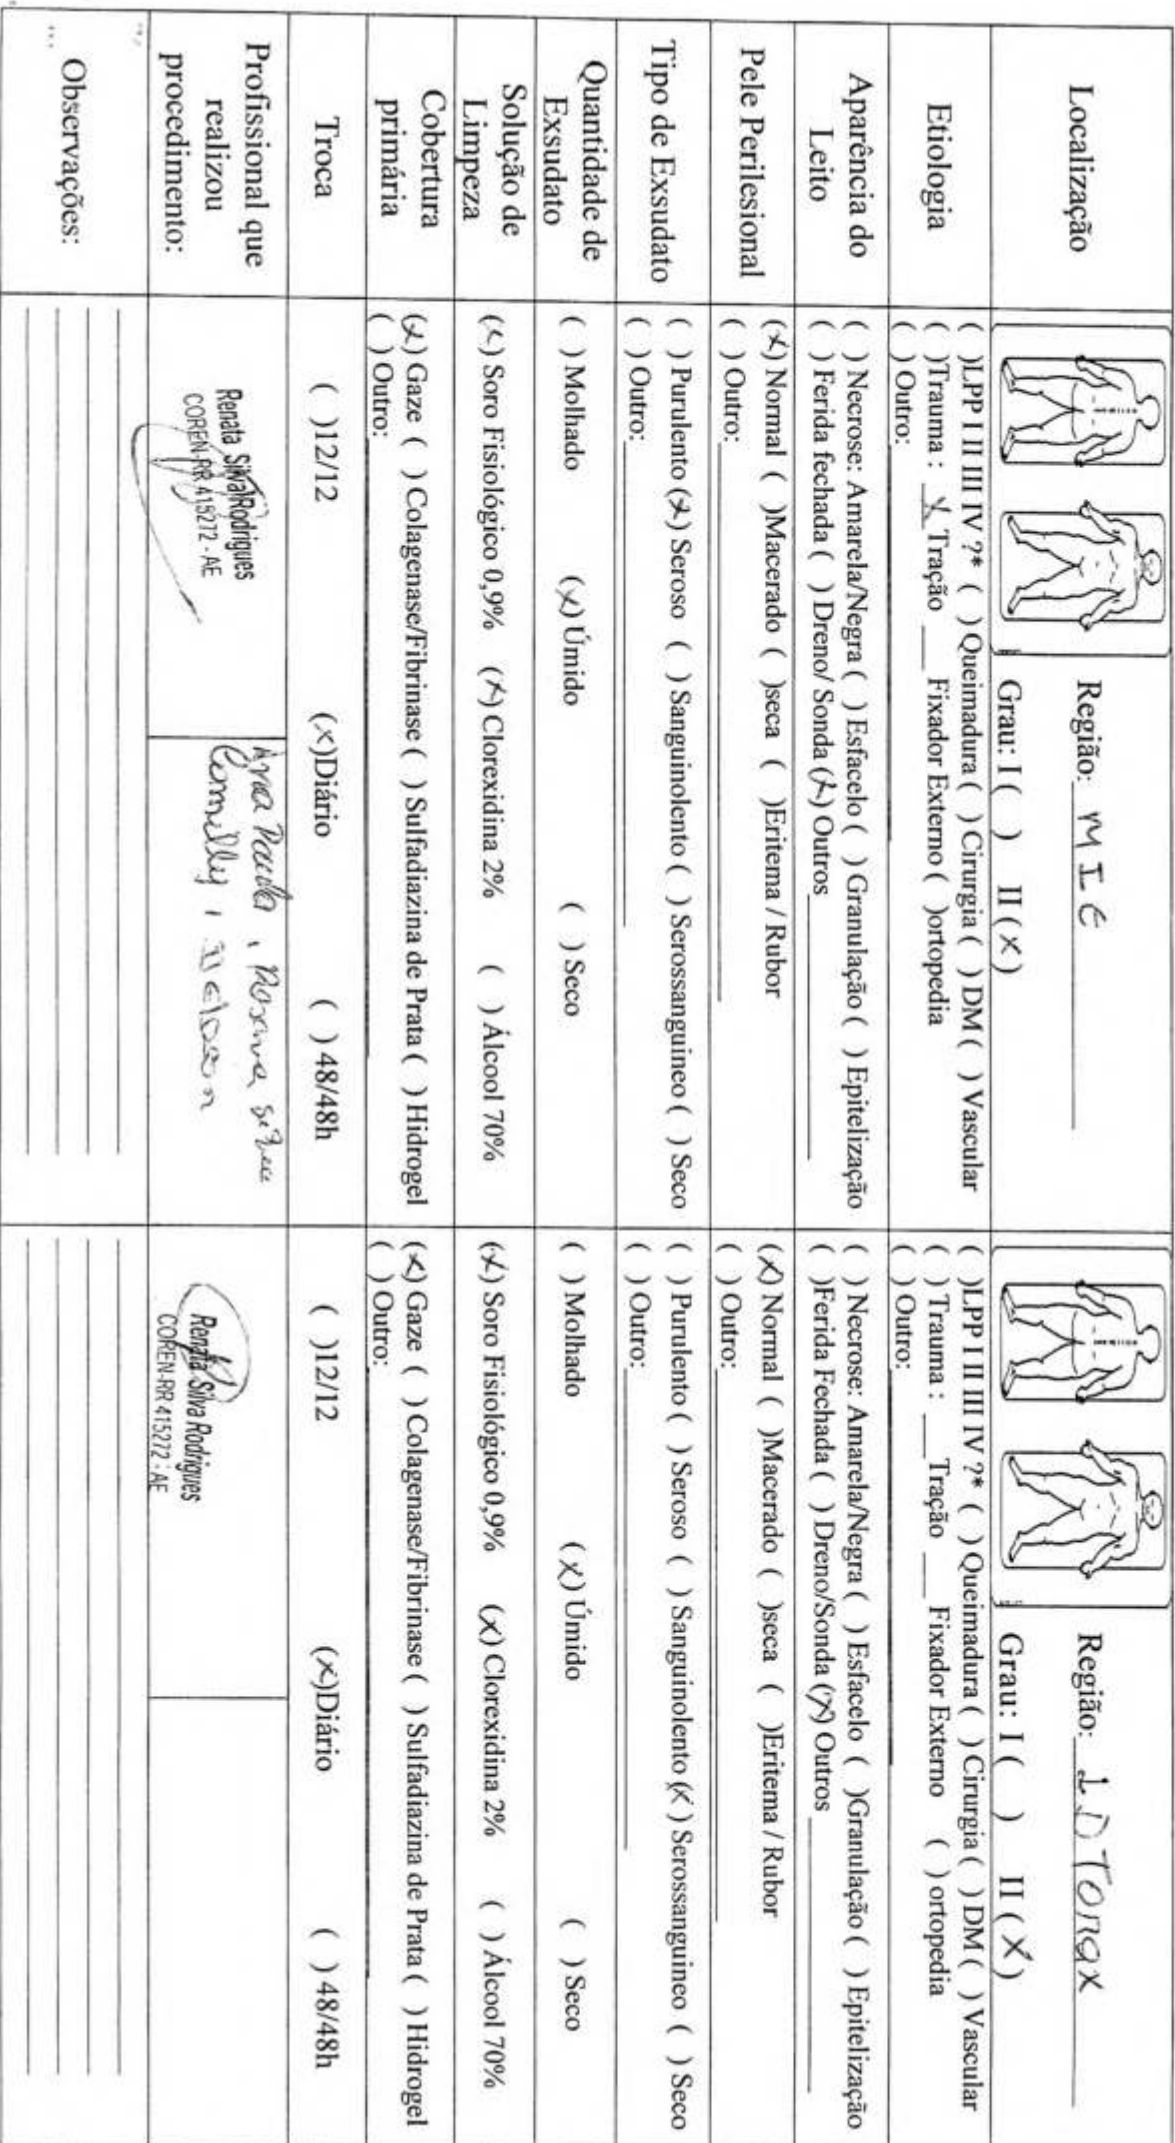 Localização
Região: MIE
Grau: I ( ) II (X)
Região: 1D TORAX
Grau: I ( ) II (X)
Etiologia
( )LPP I II III IV ?* ( ) Queimadura ( ) Cirurgia ( ) DM ( ) Vascular
( )Trauma : X Tração ___ Fixador Externo ( )ortopedia
( ) Outro:
( )LPP I II III IV ?* ( ) Queimadura ( ) Cirurgia ( ) DM ( ) Vascular
( ) Trauma : ___Tração ___ Fixador Externo ( ) ortopedia
( ) Outro:
Aparência do
Leito
( ) Necrose: Amarela/Negra ( ) Esfacelo ( ) Granulação ( ) Epitelização
( ) Ferida fechada ( ) Dreno/ Sonda (X) Outros
( ) Necrose: Amarela/Negra ( ) Esfacelo ( )Granulação ( ) Epitelização
( )Ferida Fechada ( ) Dreno/Sonda (X) Outros
Pele Perilesional
(X) Normal ( )Macerado ( )seca ( )Eritema / Rubor
( ) Outro:
(X) Normal ( )Macerado ( )seca ( )Eritema / Rubor
( ) Outro:
Tipo de Exsudato
( ) Purulento (X) Seroso ( ) Sanguinolento ( ) Serossanguineo ( ) Seco
( ) Outro:
( ) Purulento ( ) Seroso ( ) Sanguinolento (X) Serossanguineo ( ) Seco
( ) Outro:
Quantidade de
Exsudato
( ) Molhado (X) Úmido ( ) Seco
( ) Molhado (X) Úmido ( ) Seco
Solução de
Limpeza
(X) Soro Fisiológico 0,9% (X) Clorexidina 2% ( ) Álcool 70%
(X) Soro Fisiológico 0,9% (X) Clorexidina 2% ( ) Álcool 70%
Cobertura
primária
(X) Gaze ( ) Colagenase/Fibrinase ( ) Sulfadiazina de Prata ( ) Hidrogel
( ) Outro:
(X) Gaze ( ) Colagenase/Fibrinase ( ) Sulfadiazina de Prata ( ) Hidrogel
( ) Outro:
Troca
( )12/12 (X)Diário ( ) 48/48h
( )12/12 (X)Diário ( ) 48/48h
Profissional que
realizou
procedimento:
Renata Silva Rodrigues
COREN-RR 415272 - AE
Paula, Rosiva
Renata Silva Rodrigues
COREN-RR 415272 - AE
Observações: